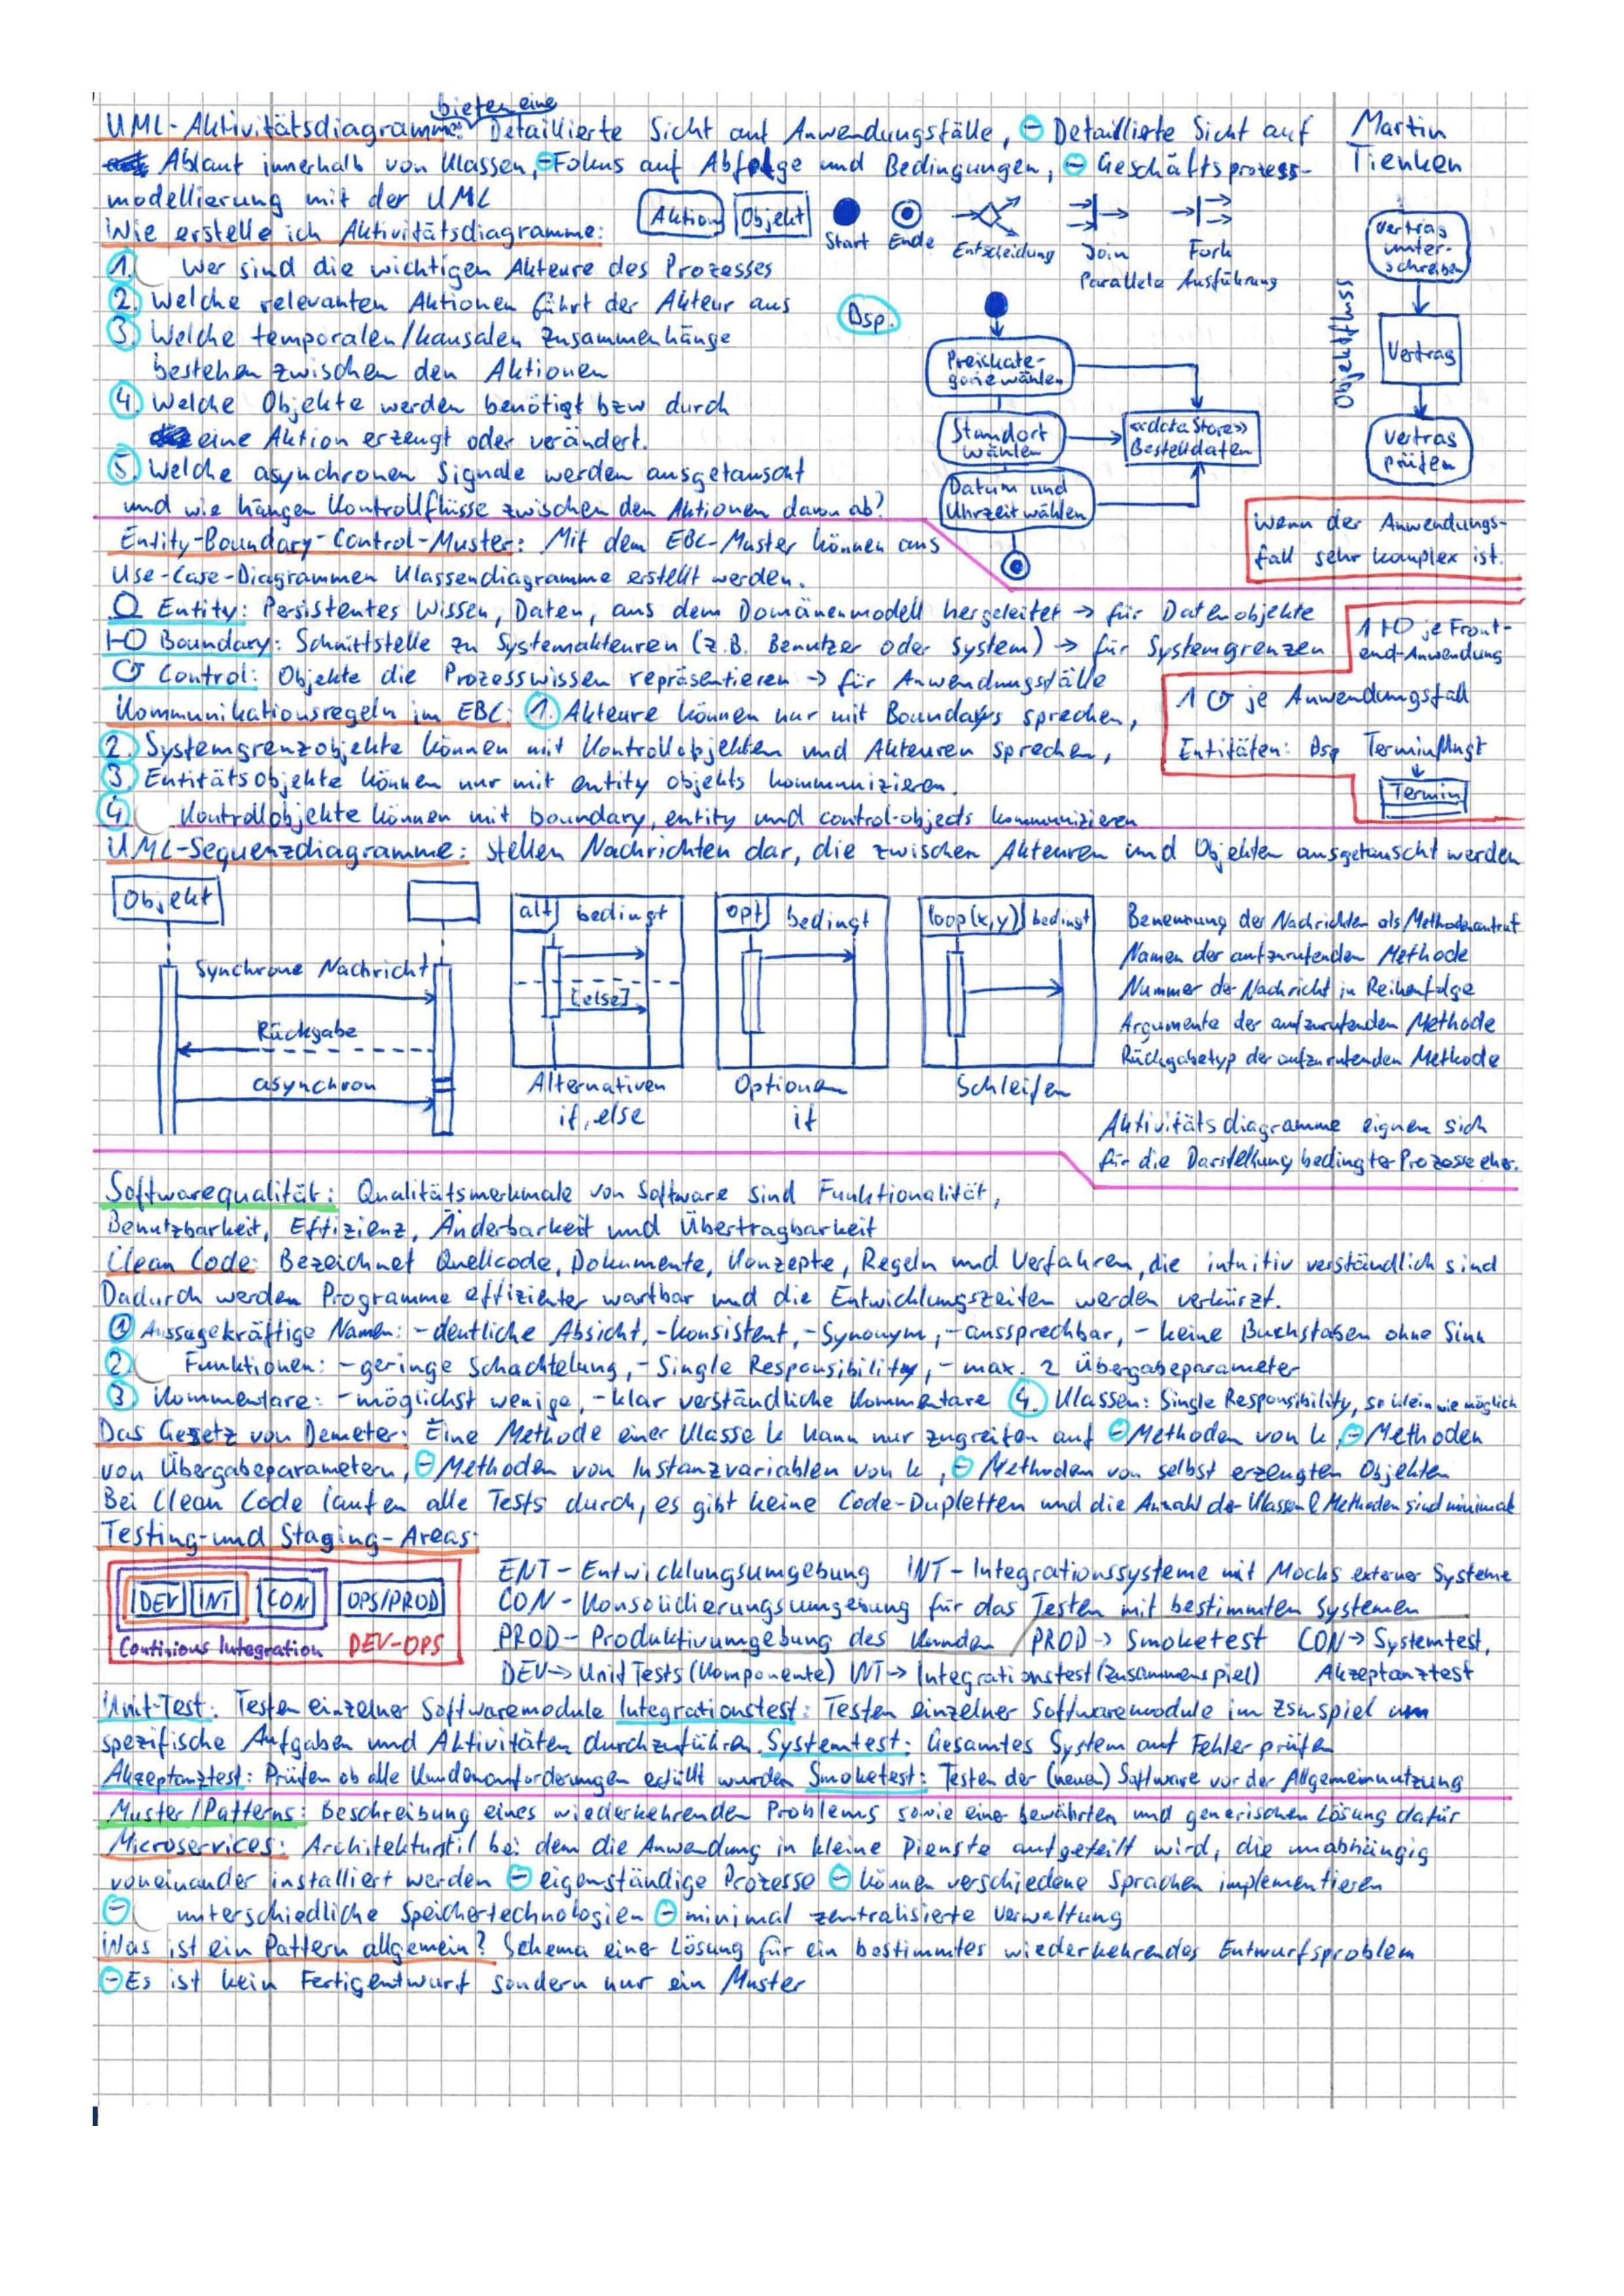 bieten eine
UML-Aktivitätsdiagramme: Detaillierte Sicht auf Anwendungsfälle, - Detaillierte Sicht auf
Ablauf innerhalb von Klassen, - Fokus auf Abfolge und Bedingungen, - Geschäftsprozess-
modellierung mit der UML
Martin
Tienken
Aktion Objekt Start Ende Entscheidung Join Fork
Parallele Ausführung
Wie erstelle ich Aktivitätsdiagramme:
1. Wer sind die wichtigen Akteure des Prozesses
2. Welche relevanten Aktionen führt der Akteur aus
3. Welche temporalen/kausalen Zusammenhänge
bestehen zwischen den Aktionen
4. Welche Objekte werden benötigt bzw durch
eine Aktion erzeugt oder verändert.
5. Welche asynchronen Signale werden ausgetauscht
und wie hängen Kontrollflüsse zwischen den Aktionen davon ab?
Bsp.
Preiskate-
gorie wählen
Standort
wählen
Datum und
Uhrzeit wählen
<<dataStore>>
Bestelldaten
Objektfluss
Vertrag
unter-
schreiben
Vertrag
Vertrag
prüfen
Wenn der Anwendungs-
fall sehr komplex ist.
Entity-Boundary-Control-Muster: Mit dem EBC-Muster können aus
Use-Case-Diagrammen Klassendiagramme erstellt werden.
Entity: Persistentes Wissen, Daten, aus dem Domänenmodell hergeleitet → für Datenobjekte
Boundary: Schnittstelle zu Systemakteuren (z.B. Benutzer oder System) → für Systemgrenzen
Control: Objekte die Prozesswissen repräsentieren → für Anwendungsfälle
1 je Front-
end-Anwendung
1 je Anwendungsfall
Entitäten: Bsp
Termin
Kommunikationsregeln im EBC: 1. Akteure können nur mit Boundarys sprechen,
2. Systemgrenzobjekte können mit Kontrollobjekten und Akteuren sprechen,
3. Entitätsobjekte können nur mit entity objekts kommunizieren.
4. Kontrollobjekte können mit boundary, entity und control-objects kommunizieren
UML-Sequenzdiagramme: stellen Nachrichten dar, die zwischen Akteuren und Objekten ausgetauscht werden
Objekt
Synchrone Nachricht
Rückgabe
asynchron
alt bedingt
[else]
Alternativen
if, else
opt bedingt
Optionen
if
loop(x,y) bedingt
Schleifen
Benennung der Nachrichten als Methodenaufruf
Namen der aufzurufenden Methode
Nummer der Nachricht in Reihenfolge
Argumente der aufzurufenden Methode
Rückgabetyp der aufzurufenden Methode
Aktivitätsdiagramme eignen sich
für die Darstellung bedingter Prozesse eher.
Softwarequalität: Qualitätsmerkmale von Software sind Funktionalität,
Benutzbarkeit, Effizienz, Änderbarkeit und Übertragbarkeit
Clean Code: Bezeichnet Quellcode, Dokumente, Konzepte, Regeln und Verfahren, die intuitiv verständlich sind
Dadurch werden Programme effizienter wartbar und die Entwicklungszeiten werden verkürzt.
1. Aussagekräftige Namen: - deutliche Absicht, - konsistent, - Synonym, - aussprechbar, - keine Buchstaben ohne Sinn
2. Funktionen: - geringe Schachtelung, - Single Responsibility, - max. 2 Übergabeparameter
3 Kommentare: - möglichst wenige, - klar verständliche Kommentare 4. Klassen: Single Responsibility, so klein wie möglich
Das Gesetz von Demeter: Eine Methode einer Klasse k kann nur zugreifen auf - Methoden von k, - Methoden
von Übergabeparametern, - Methoden von Instanzvariablen von k, - Methoden von selbst erzeugten Objekten
Bei Clean Code laufen alle Tests durch, es gibt keine Code-Dupletten und die Anzahl der Klassen & Methoden sind minimal
Testing-und Staging-Areas:
DEV INT CON OPS/PROD
Continious Integration DEV-OPS
ENT - Entwicklungsumgebung INT - Integrationssysteme mit Mocks externer Systeme
CON - Konsolidierungsumgebung für das Testen mit bestimmten Systemen
PROD - Produktivumgebung des Kunden / PROD → Smoketest CON → Systemtest,
DEV → Unit Tests (Komponente) INT → Integrationstest (Zusammenspiel) Akzeptanztest
Unit-Test: Testen einzelner Softwaremodule Integrationstest: Testen einzelner Softwaremodule im Zsmspiel um
spezifische Aufgaben und Aktivitäten durchzuführen. Systemtest: Gesamtes System auf Fehler prüfen
Akzeptanztest: Prüfen ob alle Kundenanforderungen erfüllt wurden Smoketest: Testen der (neuen) Software vor der Allgemeinnutzung
Muster/Patterns: Beschreibung eines wiederkehrenden Problems sowie einer bewährten und generischen Lösung dafür
Microservices: Architekturstil bei dem die Anwendung in kleine Dienste aufgeteilt wird, die unabhängig
voneinander installiert werden - eigenständige Prozesse - können verschiedene Sprachen implementieren
- unterschiedliche Speichertechnologien - minimal zentralisierte Verwaltung
Was ist ein Pattern allgemein? Schema einer Lösung für ein bestimmtes wiederkehrendes Entwurfsproblem
- Es ist kein Fertigentwurf sondern nur ein Muster